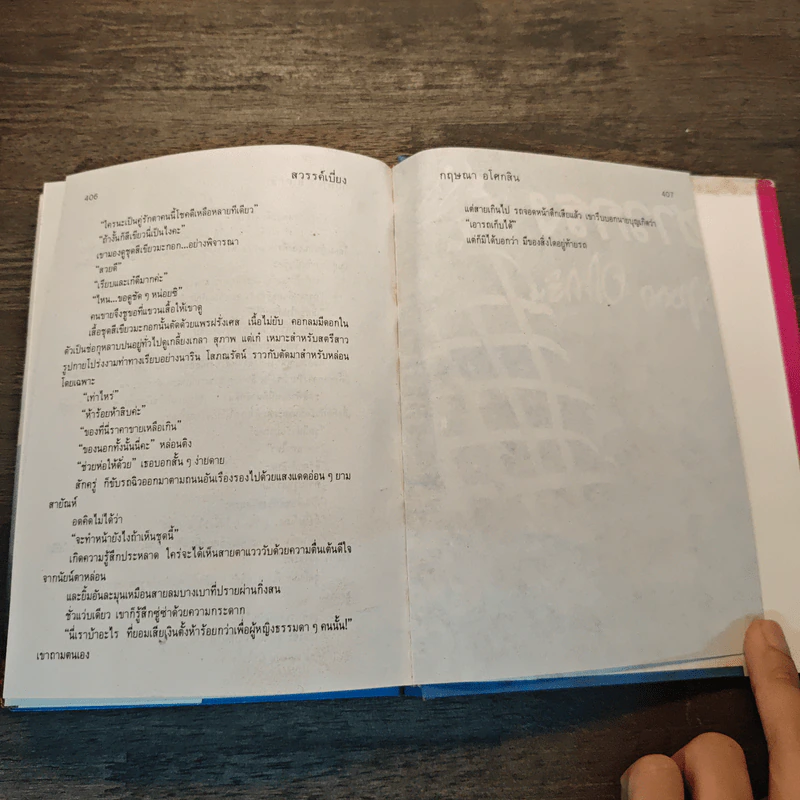 406
สวรรค์เบี่ยง
"ใครนะเป็นคู่รักตาคนนี้โชคดีเหลือหลายทีเดียว"
"ถ้างั้นก็สีเขียวนี่เป็นไงคะ"
เขามองดูชุดสีเขียวมะกอก...อย่างพิจารณา
"สวยดี"
"เรียบและเก๋ดีมากค่ะ"
"ไหน...ขอดูชัด ๆ หน่อยซิ"
คนขายจึงชูขอที่แขวนเสื้อให้เขาดู
เสื้อชุดสีเขียวมะกอกนั้นตัดด้วยแพรฝรั่งเศส เนื้อไม่ยับ คอกลมมีดอกใน
ตัวเป็นช่อกุหลาบปนอยู่ทั่วไปดูเกลี้ยงเกลา สุภาพ แต่เก๋ เหมาะสำหรับสตรีสาว
รูปกายโปร่งงามท่าทางเรียบอย่างนาริน โสภณรัตน์ ราวกับตัดมาสำหรับหล่อน
โดยเฉพาะ
"เท่าไหร่"
"ห้าร้อยห้าสิบค่ะ"
"ของที่นี่ราคาขายเหลือเกิน"
"ของนอกทั้งนั้นนี่คะ" หล่อนติง
"ช่วยห่อให้ด้วย" เธอบอกสั้น ๆ ง่ายดาย
สักครู่ ก็ขับรถฉิวออกมาตามถนนอันเรืองรองไปด้วยแสงแดดอ่อน ๆ ยาม
สายัณห์
อดคิดไม่ได้ว่า
"จะทำหน้ายังไงถ้าเห็นชุดนี้"
เกิดความรู้สึกประหลาด ใคร่จะได้เห็นสายตาแวววับด้วยความตื่นเต้นดีใจ
จากนัยน์ตาหล่อน
และยิ้มอันละมุนเหมือนสายลมบางเบาที่ปรายผ่านกิ่งสน
ชั่วแว่บเดียว เขาก็รู้สึกซู่ซ่าด้วยความกระดาก
"นี่เราบ้าอะไร ที่ยอมเสียเงินตั้งห้าร้อยกว่าเพื่อผู้หญิงธรรมดา ๆ คนนั้น!"
เขาถามตนเอง
กฤษณา อโศกสิน
407
แต่สายเกินไป รถจอดหน้าตึกเสียแล้ว เขารีบบอกนายบุญเกิดว่า
"เอารถเก็บได้"
แต่ก็มิได้บอกว่า มีของสิ่งใดอยู่ท้ายรถ